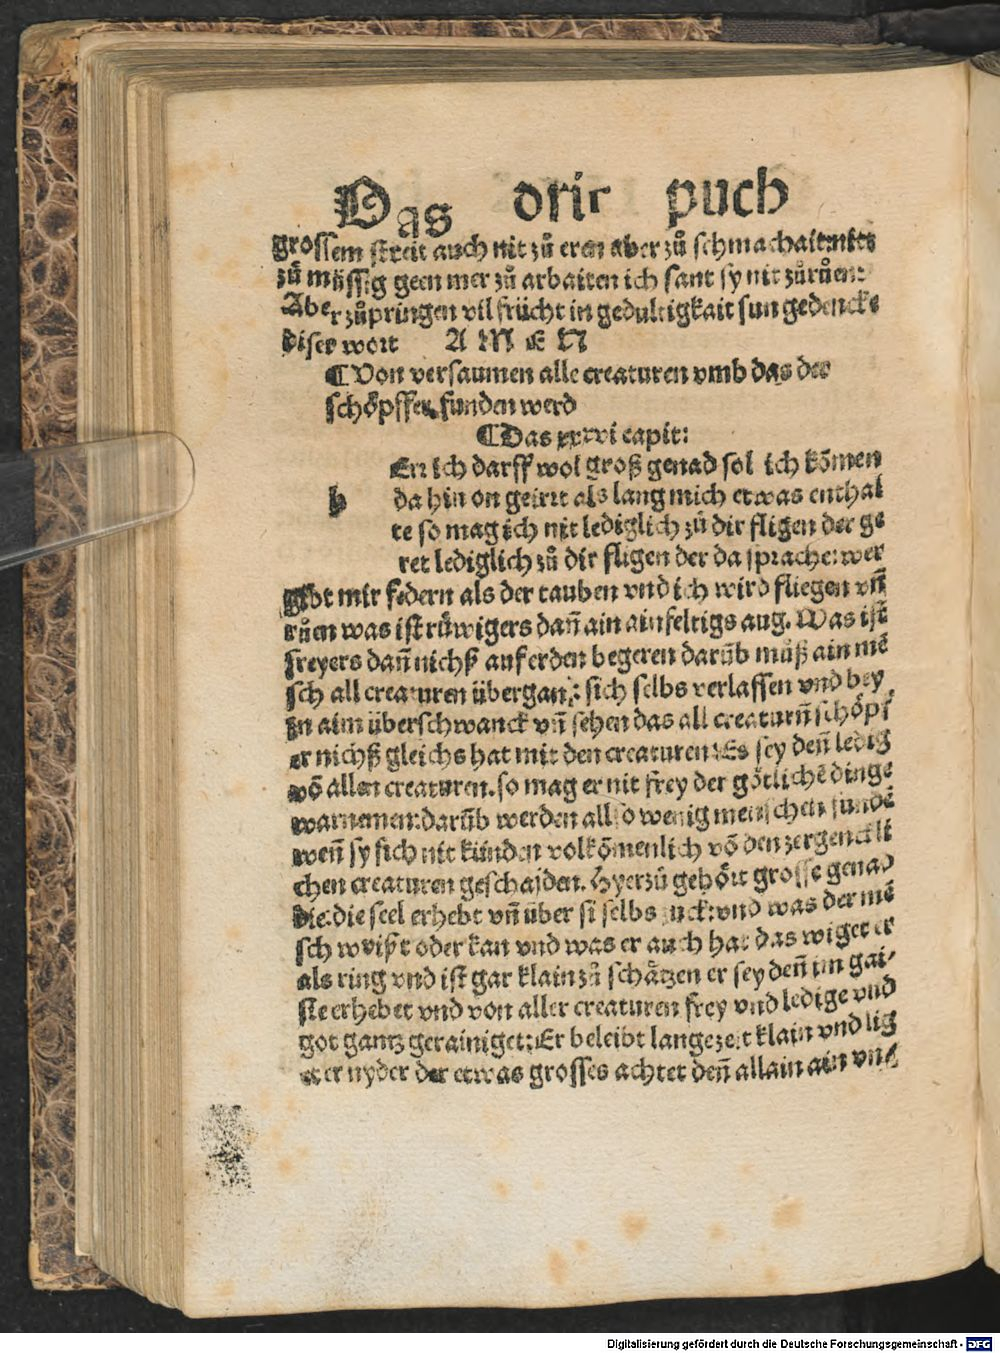 Das drit puch
grossem streit auch nit zů eren aber zů schmachait:nit
zů müssig geen mer zů arbaiten ich sant sy nit zůrůen:
Aber zůpringen vil frücht in gedultigkait sun gedencke
diser wort A M E N
¶Von versaumen alle creaturen vmb das der
schöpffer funden werd
¶Das xxxvi capit:
En ich darff wol groß genad sol ich kömen
h da hin on geirrt als lang mich etwas enthal
te so mag ich nit lediglich zů dir fligen der ge
ret lediglich zů dir fligen der da sprache:wer
gibt mir federn als der tauben vnd ich wird fliegen vn̄
růen was ist růwigers dan̄ ain ainfeltigs aug. Was ist
freyers dan̄ nichß auf erden begeren darūb můß ain mē
sch all creaturen übergan: sich selbs verlassen vnd bey
in aim überschwanck vn̄ sehen das all creaturn̄ schöpf
er nichß gleichs hat mit den creaturen:Es sey den̄ ledig
võ allen creaturen.so mag er nit frey der götlichē dinge
warnemen:darūb werden allso wenig menschen fundē
wen̄ sy sich nit künden volkõmenlich võ den zergenckli
chen creaturen geschaiden. Hyerzů gehört grosse genad
die:die seel erhebt vn̄ über si selbs zuck:vnd was der mē
sch weißt oder kan vnd was er auch hat das wiget er
als ring vnd ist gar klain zů schätzen er sey den̄ im gai/
ste erhebet vnd von aller creaturen frey vnd ledige vnd
got gantz gerainiget:Er beleibt langezeit klain vnd lig
et er nyder der etwas grosses achtet den̄ allain ain vn/
Digitalisierung gefördert durch die Deutsche Forschungsgemeinschaft - DFG